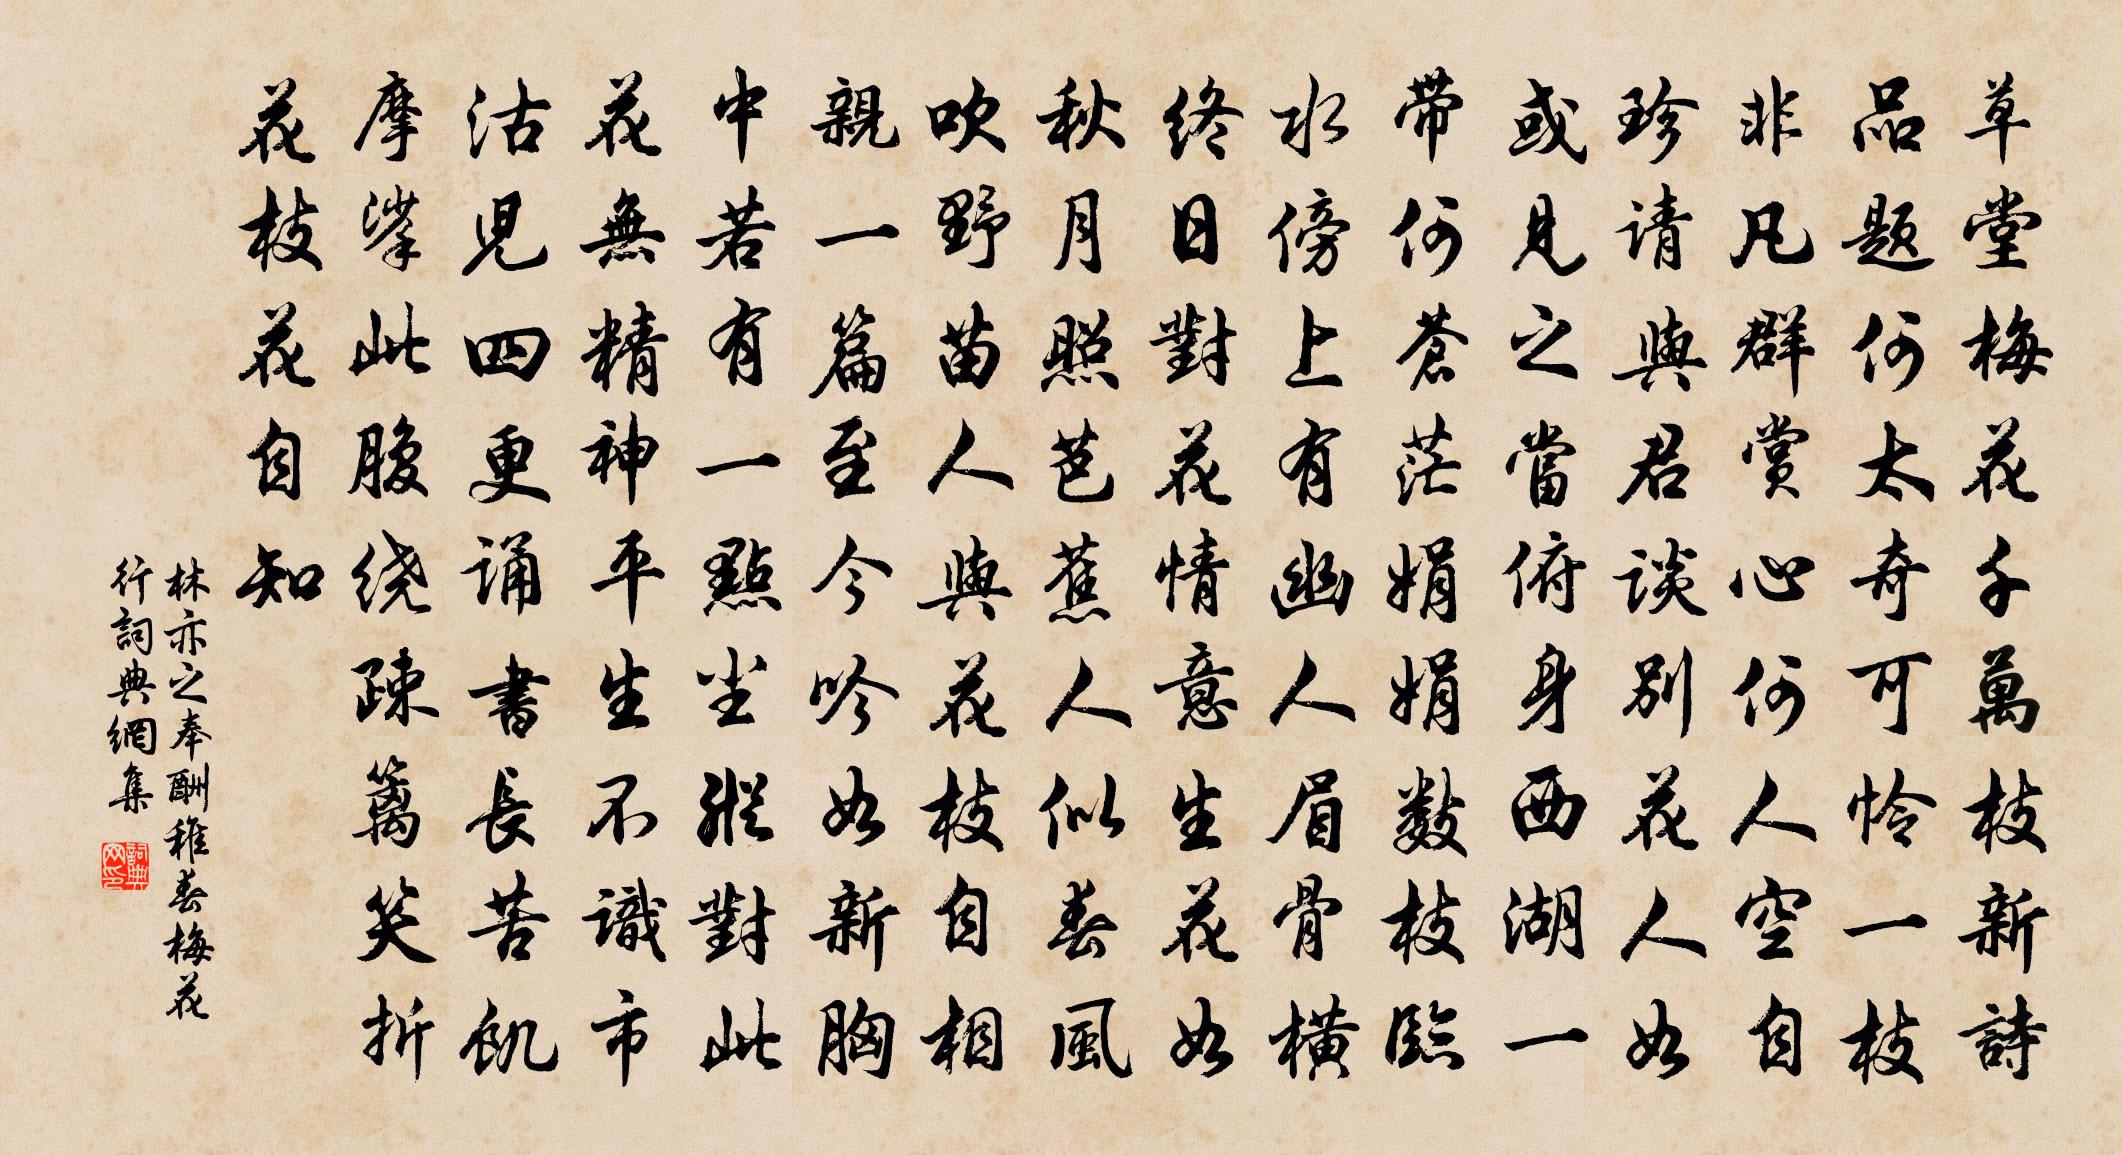 草堂梅花千萬枝新詩
品题何太奇可怜一枝
非凡群赏心何人空自
珍请與君谈别花人如
或見之當俯身西湖一
带何蒼茫娟娟數枝臨
水傍上有幽人眉骨横
终日對花情意生花如
秋月照芭蕉人似春風
吹野苗人與花枝自相
親一篇至今吟如新胸
中若有一點尘縱對此
花無精神平生不識市
沽児四更诵書長苦飢
摩挲此腹绕疎篱笑折
花枝花自知
林亦之奉酬稚春梅花
行詞典網集
詞典网印